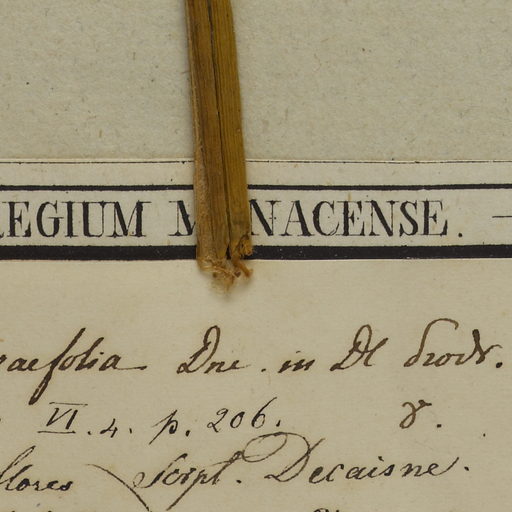 REGIUM M NACENSE. —
aefolia Dne. in Dl
VI. 4. p. 206. γ.
flores Script. Decaisne.